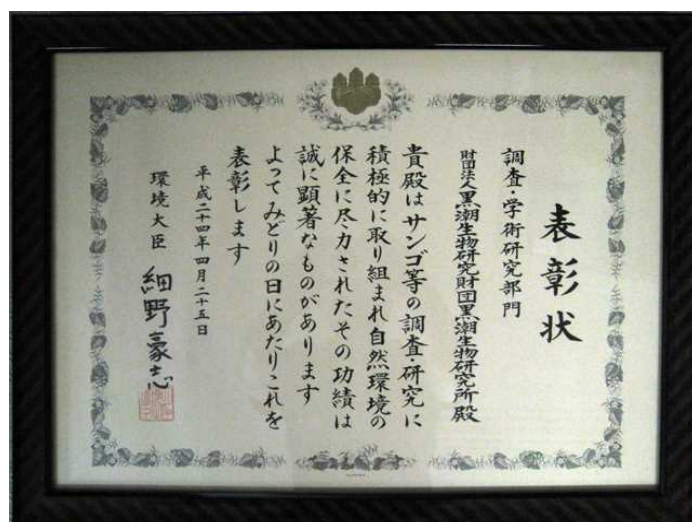 表彰状
調査・学術研究部門
財団法人黒潮生物研究財団黒潮生物研究所殿
貴殿はサンゴ等の調査・研究に
積極的に取り組まれ自然環境の
保全に尽力されたその功績は
誠に顕著なものがあります
よってみどりの日にあたりこれを
表彰します
平成二十四年四月二十五日
環境大臣 細野豪志